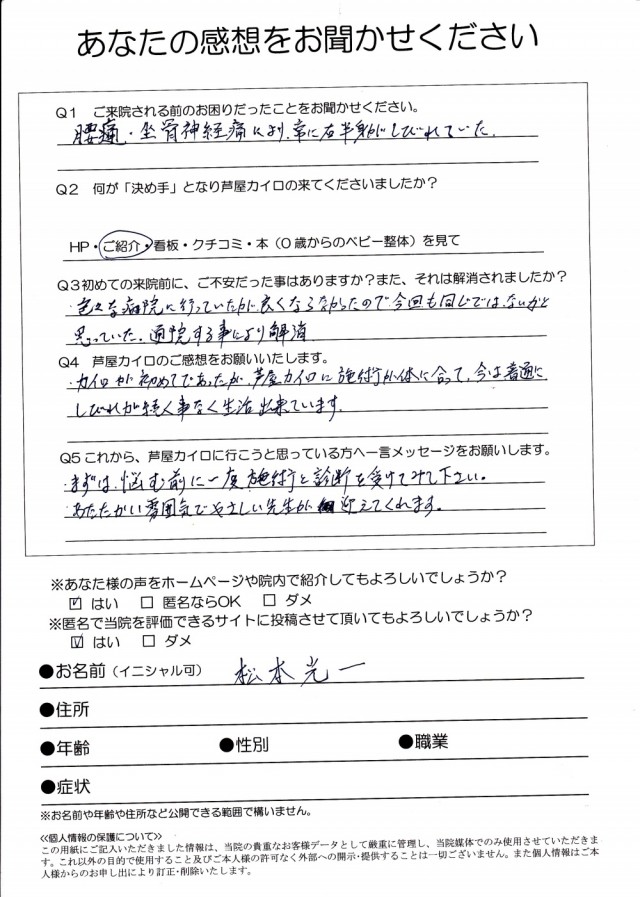 あなたの感想をお聞かせください
Q1 ご来院される前のお困りだったことをお聞かせください。
腰痛・坐骨神経痛により、常に右半身がしびれていた。
Q2 何が「決め手」となり芦屋カイロの来てくださいましたか？
HP・ご紹介・看板・クチコミ・本（0歳からのベビー整体）を見て
Q3初めての来院前に、ご不安だった事はありますか？また、それは解消されましたか？
・色々な病院に行っていたが良くならなかったので今回も同じではないかと
思っていた。通院する事により解消
Q4 芦屋カイロのご感想をお願いいたします。
・カイロが初めてであったが、芦屋カイロに施術が体に合って、今は普通に
しびれが続く事なく生活出来ています。
Q5これから、芦屋カイロに行こうと思っている方へ一言メッセージをお願いします。
・まずは、悩む前に一度施術と診断を受けてみて下さい。
・あたたかい雰囲気でやさしい先生が迎えてくれます。
※あなた様の声をホームページや院内で紹介してもよろしいでしょうか？
☑ はい □ 匿名ならOK □ ダメ
※匿名で当院を評価できるサイトに投稿させて頂いてもよろしいでしょうか？
☑ はい □ ダメ
●お名前（イニシャル可） 松本光一
●住所
●年齢 ●性別 ●職業
●症状
※お名前や年齢や住所など公開できる範囲で構いません。
≪個人情報の保護について≫
この用紙にご記入いただきました情報は、当院の貴重なお客様データとして厳重に管理し、当院媒体でのみ使用させていただきま
す。これ以外の目的で使用すること及びご本人様の許可なく外部への開示・提供することは一切ございません。また個人情報はご本
人様からのお申し出により訂正・削除いたします。